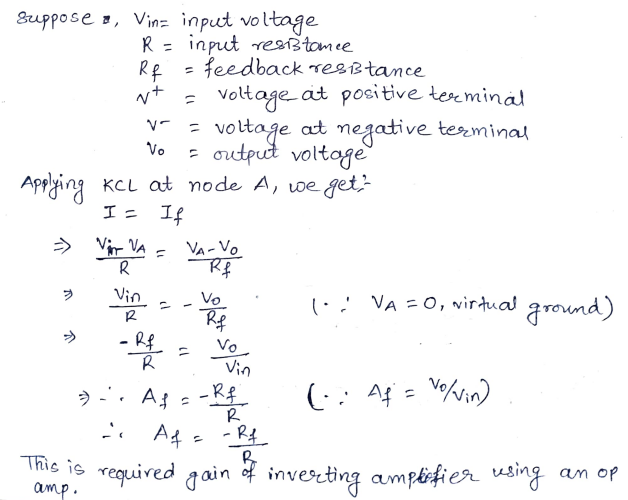 Suppose, Vin = input voltage
R = input resistance
Rf = feedback resistance
V+ = voltage at positive terminal
V- = voltage at negative terminal
Vo = output voltage
Applying KCL at node A, we get:-
I = If
⇒ Vin-VA/R = VA-Vo/Rf
⇒ Vin/R = -Vo/Rf (∵ VA = 0, virtual ground)
⇒ -Rf/R = Vo/Vin
⇒ ∴ Af = -Rf/R (∵ Af = Vo/Vin)
∴ Af = -Rf/R
This is required gain of inverting amplifier using an op
amp.